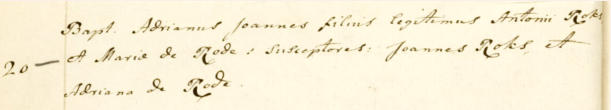 Bapt. Adrianus Joannes filius legitimus Antonii Roks
20 — et Mariæ de Rode: Susceptores: Joannes Roks, et
Adriana de Rode.